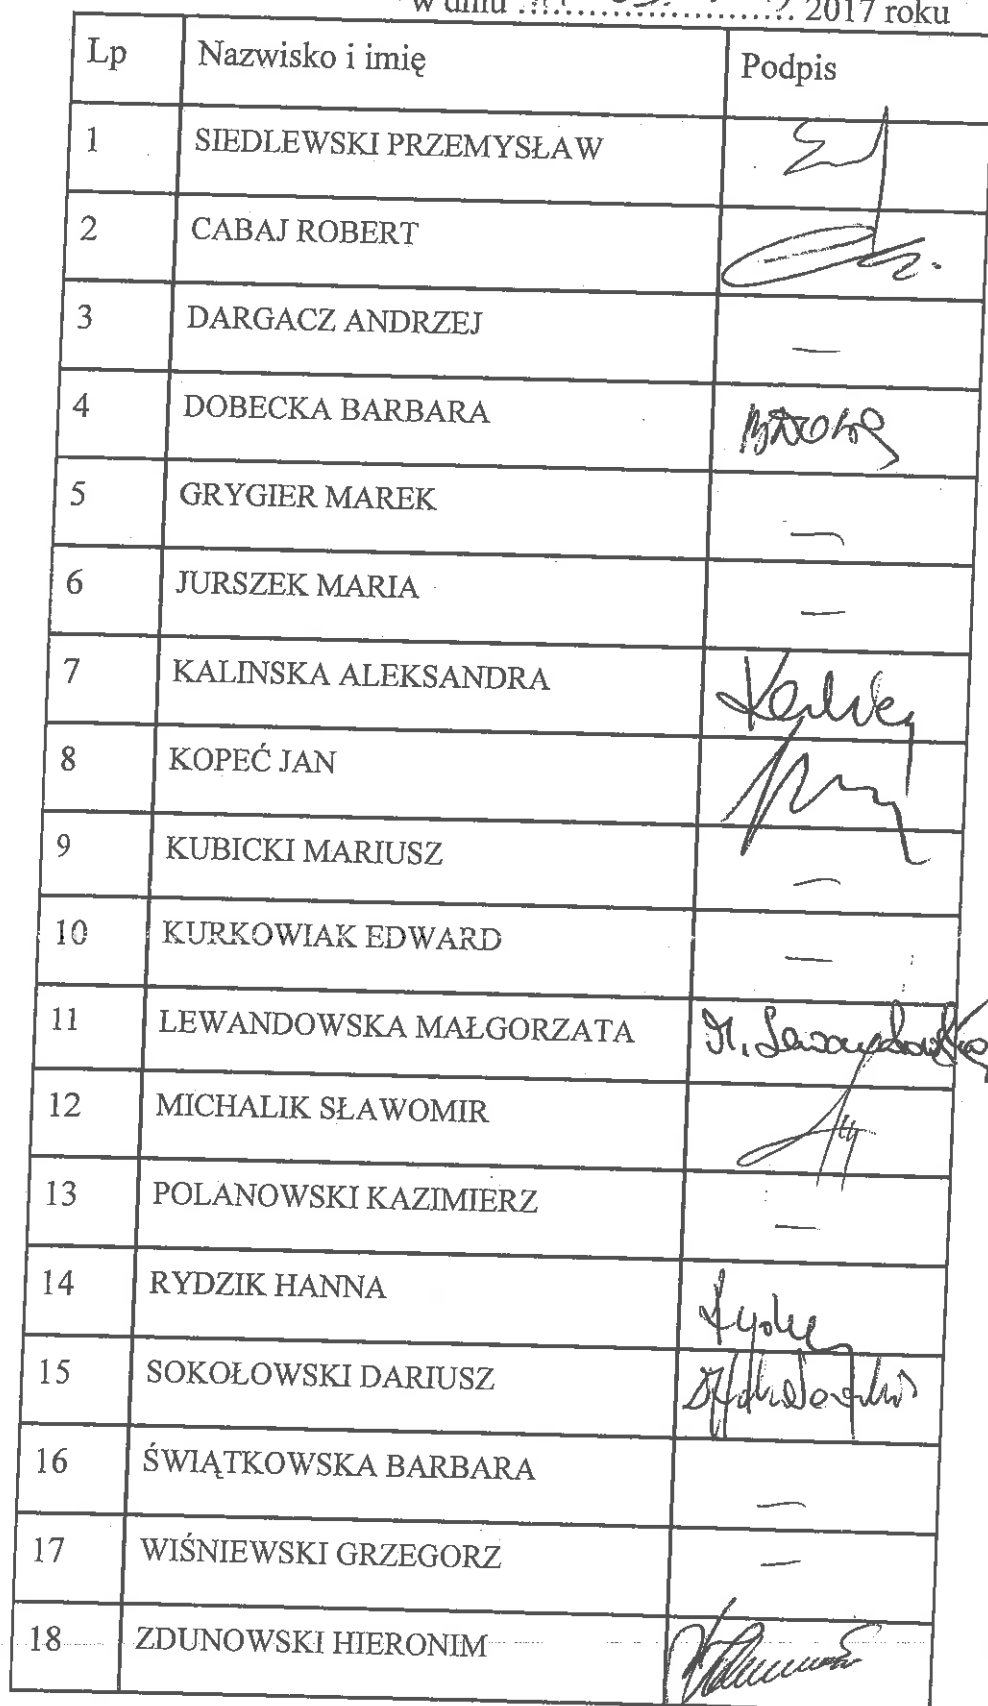 w dniu ........................ 2017 roku
Lp Nazwisko i imię Podpis
1 SIEDLEWSKI PRZEMYSŁAW
2 CABAJ ROBERT
3 DARGACZ ANDRZEJ —
4 DOBECKA BARBARA
5 GRYGIER MAREK —
6 JURSZEK MARIA —
7 KALINSKA ALEKSANDRA
8 KOPEĆ JAN
9 KUBICKI MARIUSZ —
10 KURKOWIAK EDWARD —
11 LEWANDOWSKA MAŁGORZATA M. Lewandowska
12 MICHALIK SŁAWOMIR
13 POLANOWSKI KAZIMIERZ —
14 RYDZIK HANNA
15 SOKOŁOWSKI DARIUSZ
16 ŚWIĄTKOWSKA BARBARA —
17 WIŚNIEWSKI GRZEGORZ —
18 ZDUNOWSKI HIERONIM